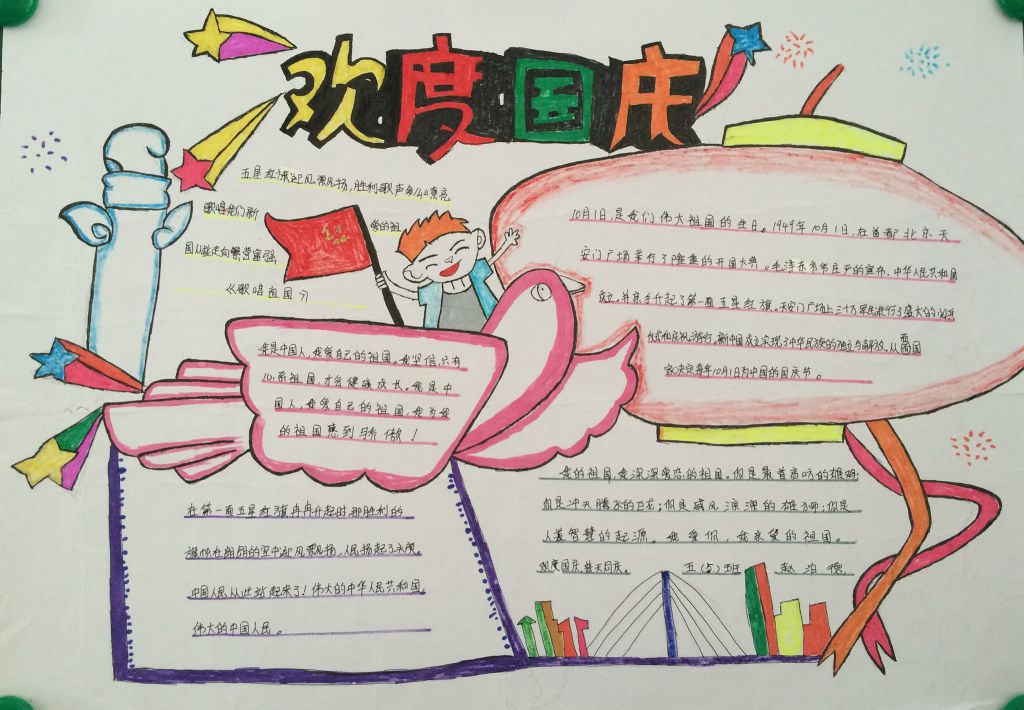 欢度国庆
五星红旗迎风飘扬,胜利歌声多么嘹亮
歌唱我们新
爱的祖
国从此走向繁荣富强
《歌唱祖国》
10月1日,是我们伟大祖国的生日。1949年10月1日,在首都北京天
安门广场举行了隆重的开国大典。毛泽东爷爷庄严的宣布,中华人民共和国
成立,并亲手升起了第一面五星红旗。天安门广场上三十万军民进行了盛大的阅兵
仪式和庆祝游行。新中国成立实现了中华民族的独立与解放,从 国
家决定每年10月1日为中国的国庆节。
我是中国人,我爱自己的祖国。我坚信,只有
心系祖国,才会健康成长。我是中
国人,我爱自己的祖国,我为我
的祖国感到骄傲!
在第一面五星红旗冉冉升起时,那胜利的
旗帜在朗朗的空中迎风飘扬,人民扬起了头颅,
中国人民从此站起来了!伟大的中华人民共和国,
伟大的中国人民。
我的祖国,我深深爱恋的祖国。你是最首高吭的雄鸡
你是冲天腾飞的巨龙;你是威风凛凛的雄狮;你是
人类智慧的起源。我爱你,我亲爱的祖国。
欢度国庆,普天同庆。 五(5)班 赵泊德